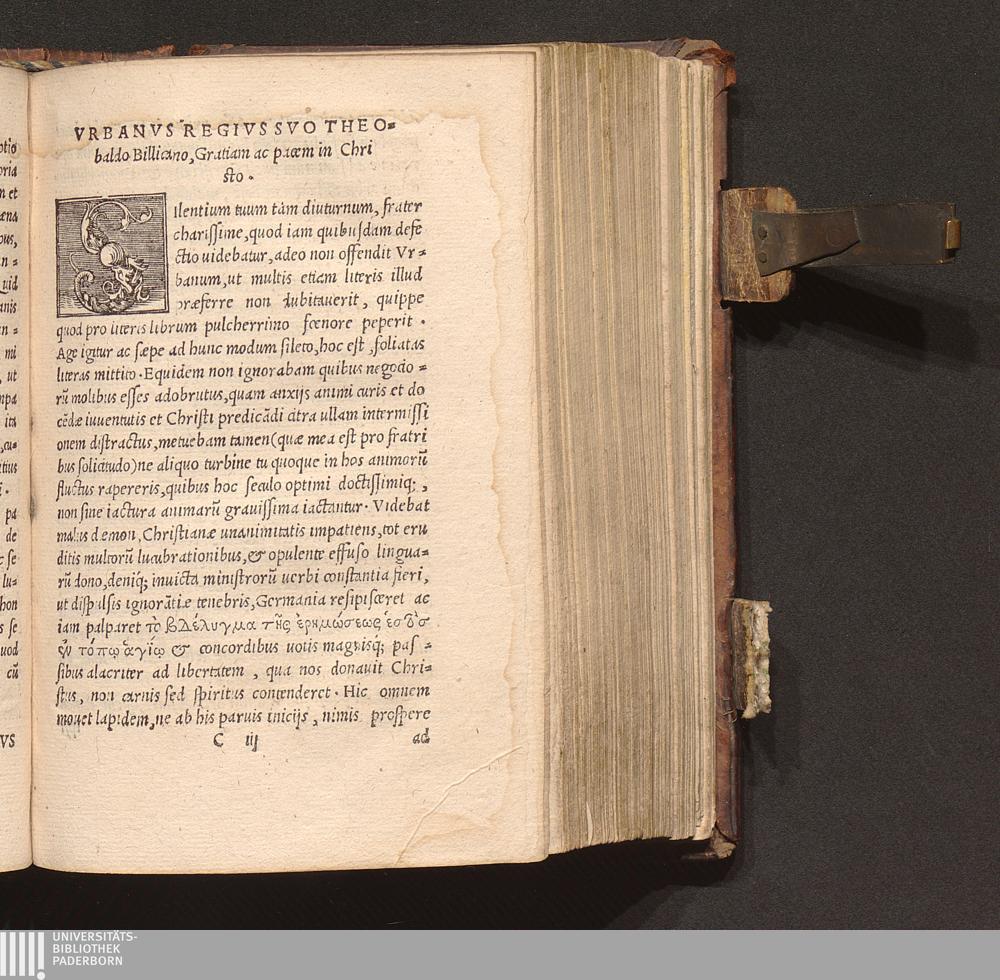 VRBANVS REGIVS SVO THEO=
baldo Billicano, Gratiam ac pacem in Chri
sto.
Silentium tuum tàm diuturnum, frater
charissime, quod iam quibusdam defe
ctio uidebatur, adeo non offendit Vr=
banum, ut multis etiam literis illud
præferre non dubitauerit, quippe
quod pro literis librum pulcherrimo fœnore peperit.
Age igitur ac sæpe ad hunc modum sileto, hoc est, foliatas
literas mittito. Equidem non ignorabam quibus negocio=
rū molibus esses adobrutus, quam anxijs animi curis et do
cēdæ iuuentutis et Christi predicādi citra ullam intermissi
onem distractus, metuebam tamen (quæ mea est pro fratri
bus solicitudo) ne aliquo turbine tu quoque in hos animorū
fluctus rapereris, quibus hoc seculo optimi doctissimiq;,
non sine iactura animarū grauissima iactantur. Videbat
malus dæmon, Christianæ unanimitatis impatiens, tot eru
ditis multorū lucubrationibus, & opulente effuso lingua=
rū dono, deniq; inuicta ministrorū uerbi constantia fieri,
ut dispulsis ignorātiæ tenebris, Germania resipisceret ac
iam palparet τὸ βδέλυγμα τῆς ἐρημώσεως ἑσὸς
ἐν τόπῳ ἁγίῳ & concordibus uotis magnisq; pas=
sibus alacriter ad libertatem, qua nos donauit Chri=
stus, non carnis sed spiritus contenderet. Hic omnem
mouet lapidem, ne ab his paruis inicijs, nimis prospere
C iij ad
UNIVERSITÄTS-
BIBLIOTHEK
PADERBORN